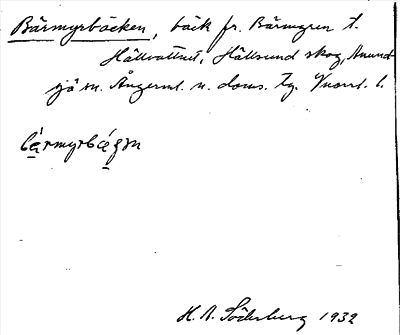 Bärmyrbäcken, bäck fr. Bärmyren t.
Hällvattnet, Hällsund skog, Anund-
sjö sn. Ångerml. n. doms. tg. Vnorrl. l.
bärmyrbägṃ
H. A. Söderberg 1932